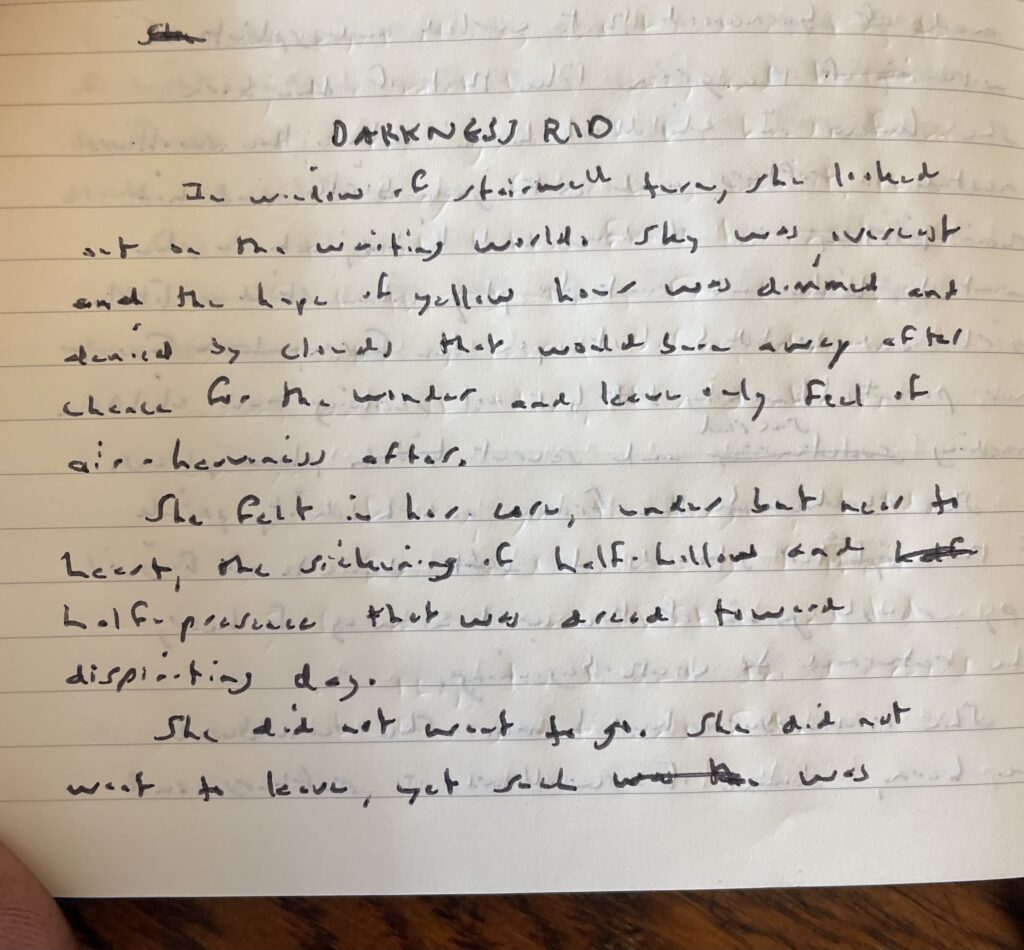 DARKNESS RID
In window of stairwell turn, she looked
out on the waiting world. Sky was overcast
and the hope of yellow hour was dimmed and
denied by clouds that would burn away after
chance for the wonder and leave only feel of
air-heaviness after.
She felt in her core, under but near to
heart, the sickening of half-hollow and half
half-presence that was dread toward
dispiriting day.
She did not want to go. She did not
want to leave, yet such was the. was